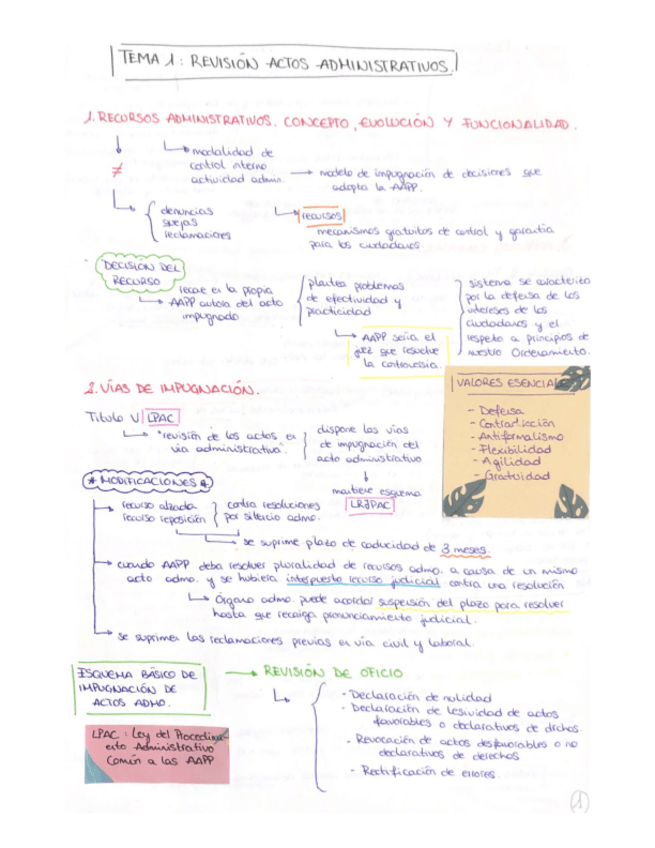 TEMA 1: REVISIÓN ACTOS ADMINISTRATIVOS.
1. RECURSOS ADMINISTRATIVOS. CONCEPTO, EVOLUCIÓN Y FUNCIONALIDAD.
modalidad de
control interno
actividad admin.
modelo de impugnación de decisiones que
adopta la AAPP.
≠
denuncias
quejas
reclamaciones
recursos
mecanismos gratuitos de control y garantía
para los ciudadanos
DECISIÓN DEL
RECURSO
recae en la propia
AAPP autora del acto
impugnado
plantea problemas
de efectividad y
practicidad
AAPP sería el
juez que resuelve
la controversia.
sistema se caracteriza
por la defensa de los
intereses de los
ciudadanos y el
respeto a principios de
nuestro Ordenamiento.
2. VÍAS DE IMPUGNACIÓN.
Título V LPAC
"revisión de los actos en
vía administrativa".
dispone las vías
de impugnación del
acto administrativo
mantiene esquema
LRJPAC
VALORES ESENCIALES
- Defensa
- Contradicción
- Antiformalismo
- Flexibilidad
- Agilidad
- Gratuidad
* MODIFICACIONES *
recurso alzada
recurso reposición
contra resoluciones
por silencio admo.
se suprime plazo de caducidad de 3 meses.
cuando AAPP deba resolver pluralidad de recursos admo. a causa de un mismo
acto admo. y se hubiera interpuesto recurso judicial contra una resolución
Órgano admo. puede acordar suspensión del plazo para resolver
hasta que recaiga pronunciamiento judicial.
se suprimen las reclamaciones previas en vía civil y laboral.
ESQUEMA BÁSICO DE
IMPUGNACIÓN DE
ACTOS ADMO.
REVISIÓN DE OFICIO
- Declaración de nulidad
- Declaración de lesividad de actos
favorables o declarativos de drchos.
- Revocación de actos desfavorables o no
declarativos de derechos
- Rectificación de errores.
LPAC: Ley del Procedimi
ento Administrativo
Común a las AAPP
1